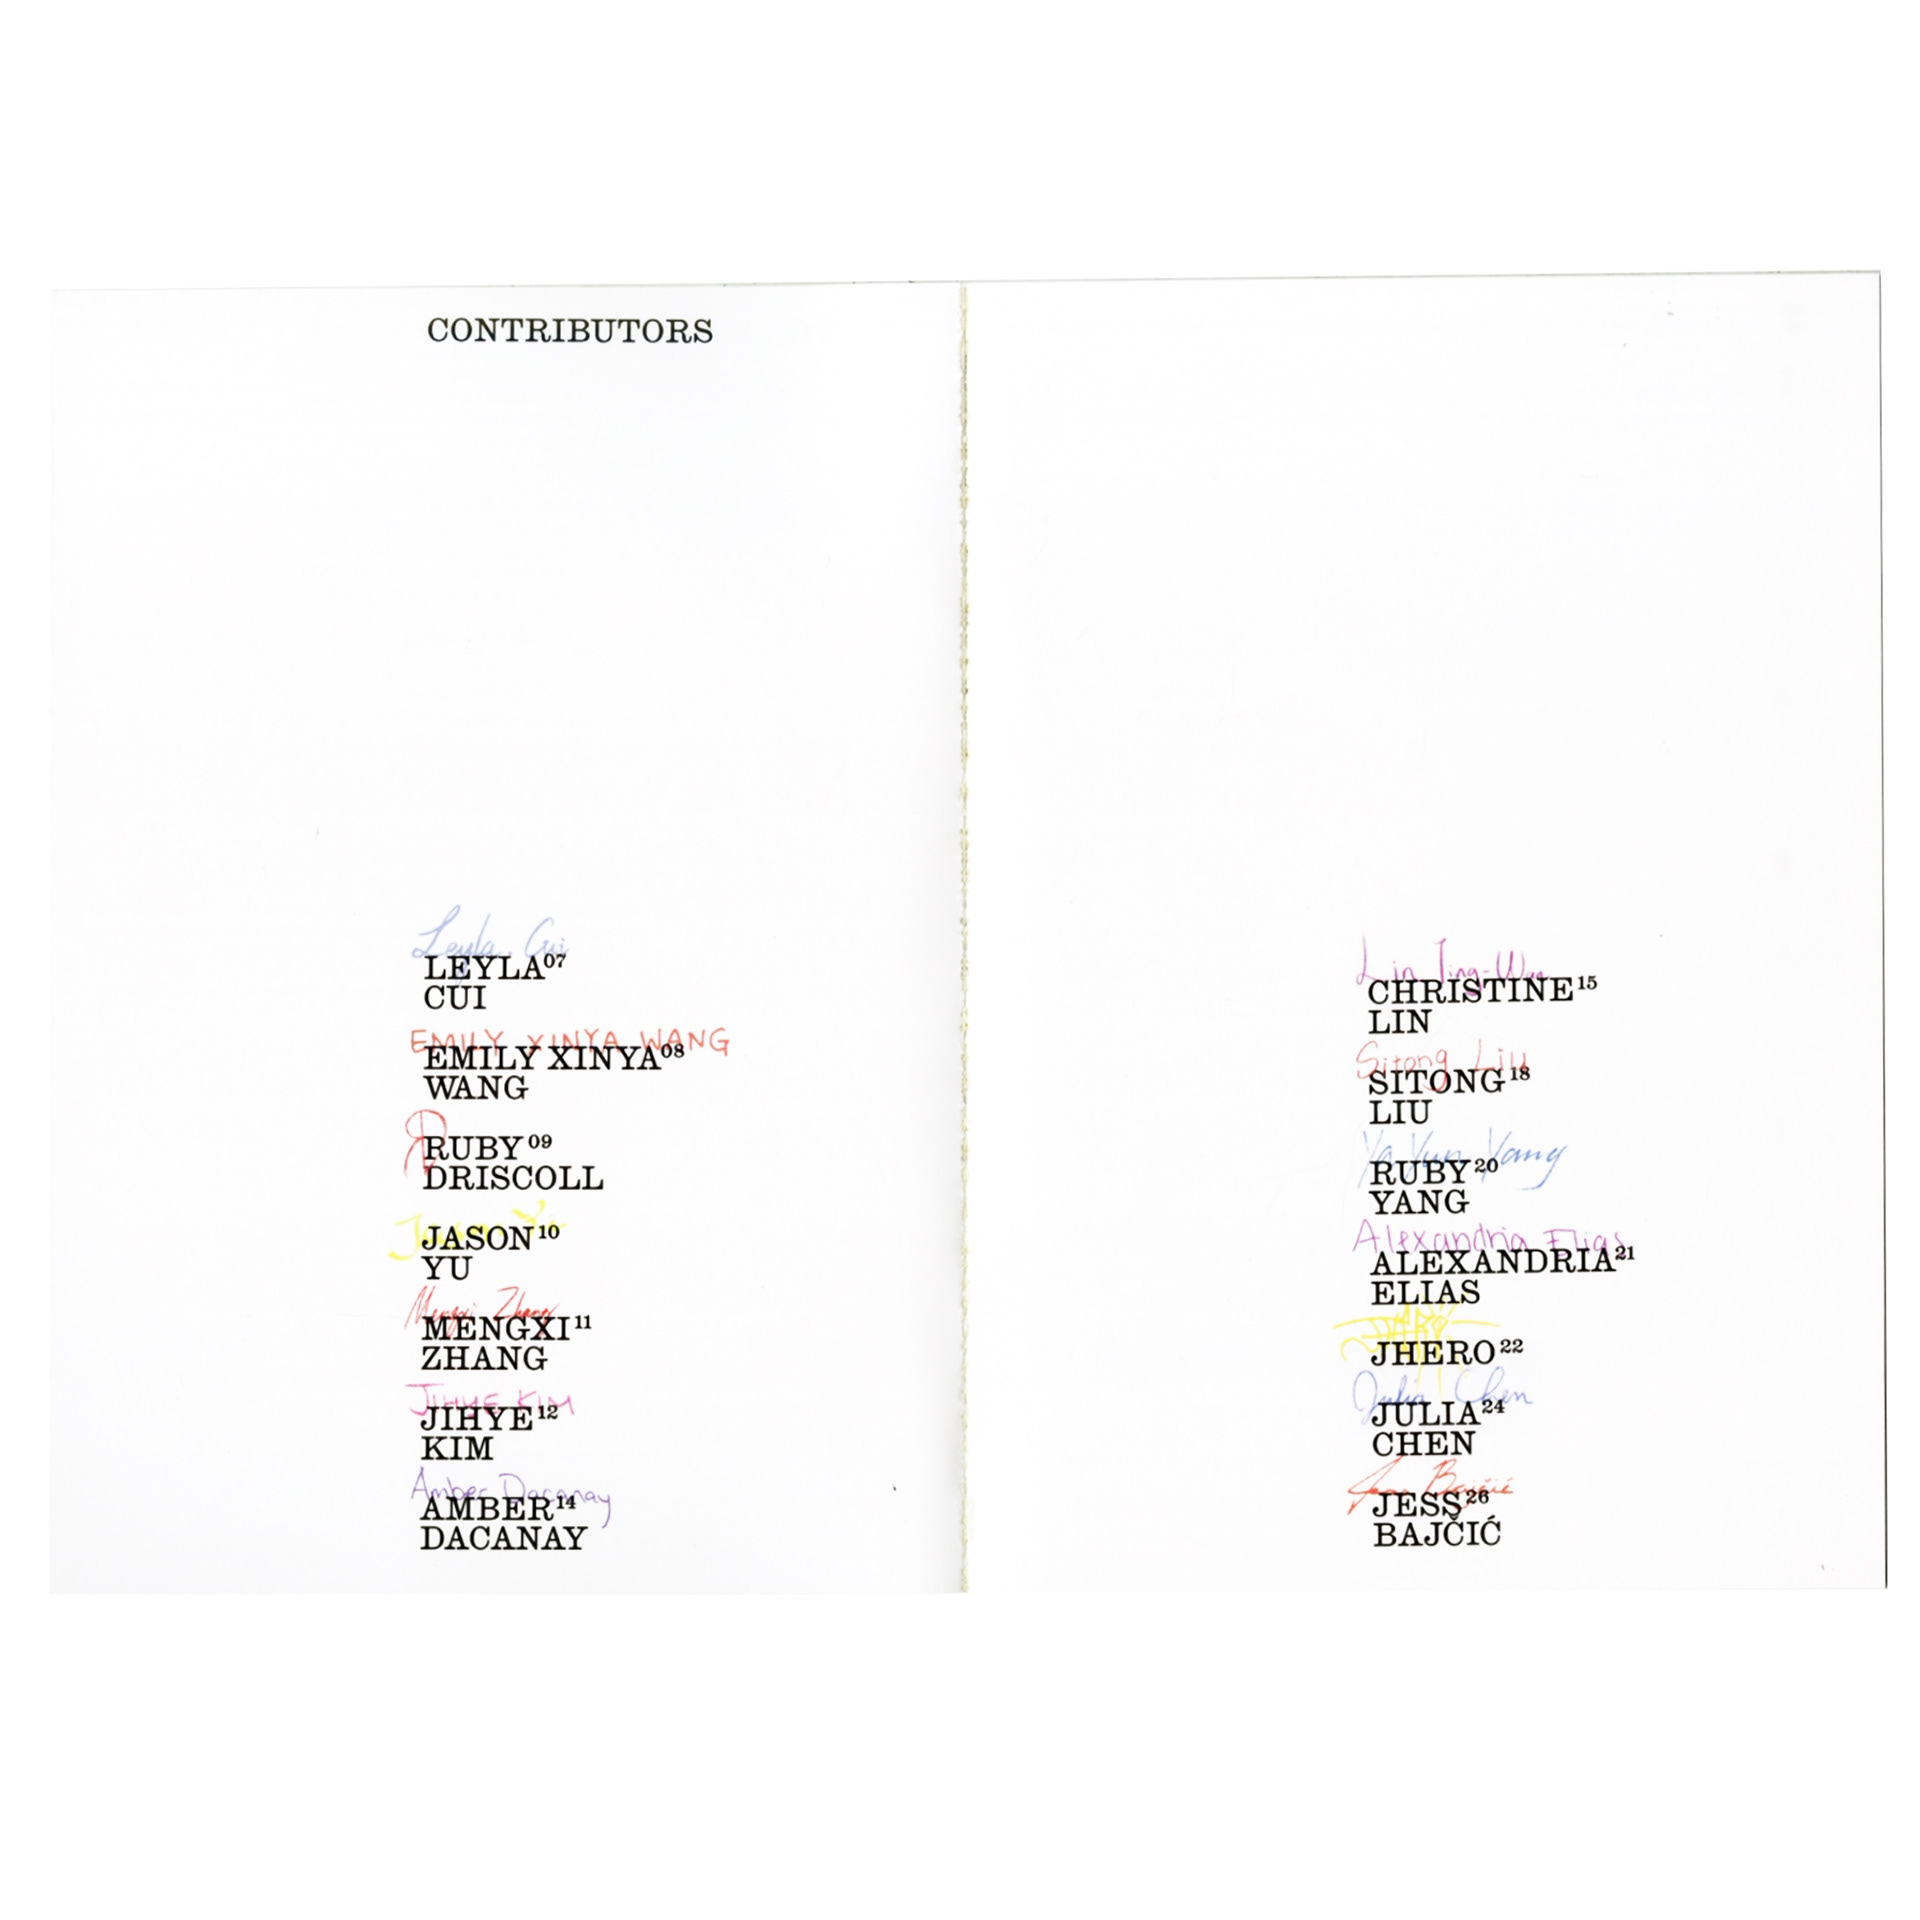 CONTRIBUTORS
Leyla Cui
LEYLA⁰⁷
CUI
EMILY XINYA WANG
EMILY XINYA⁰⁸
WANG
RUBY⁰⁹
DRISCOLL
Jason Yu
JASON¹⁰
YU
Mengxi Zhang
MENGXI¹¹
ZHANG
JIHYE KIM
JIHYE¹²
KIM
Amber Dacanay
AMBER¹⁴
DACANAY
Lin
CHRISTINE¹⁵
LIN
Sitong Liu
SITONG¹⁸
LIU
Ya Yun Yang
RUBY²⁰
YANG
Alexandria Elias
ALEXANDRIA²¹
ELIAS
JHERO²²
Julia Chen
JULIA²⁴
CHEN
Bajčić
JESS²⁶
BAJČIĆ